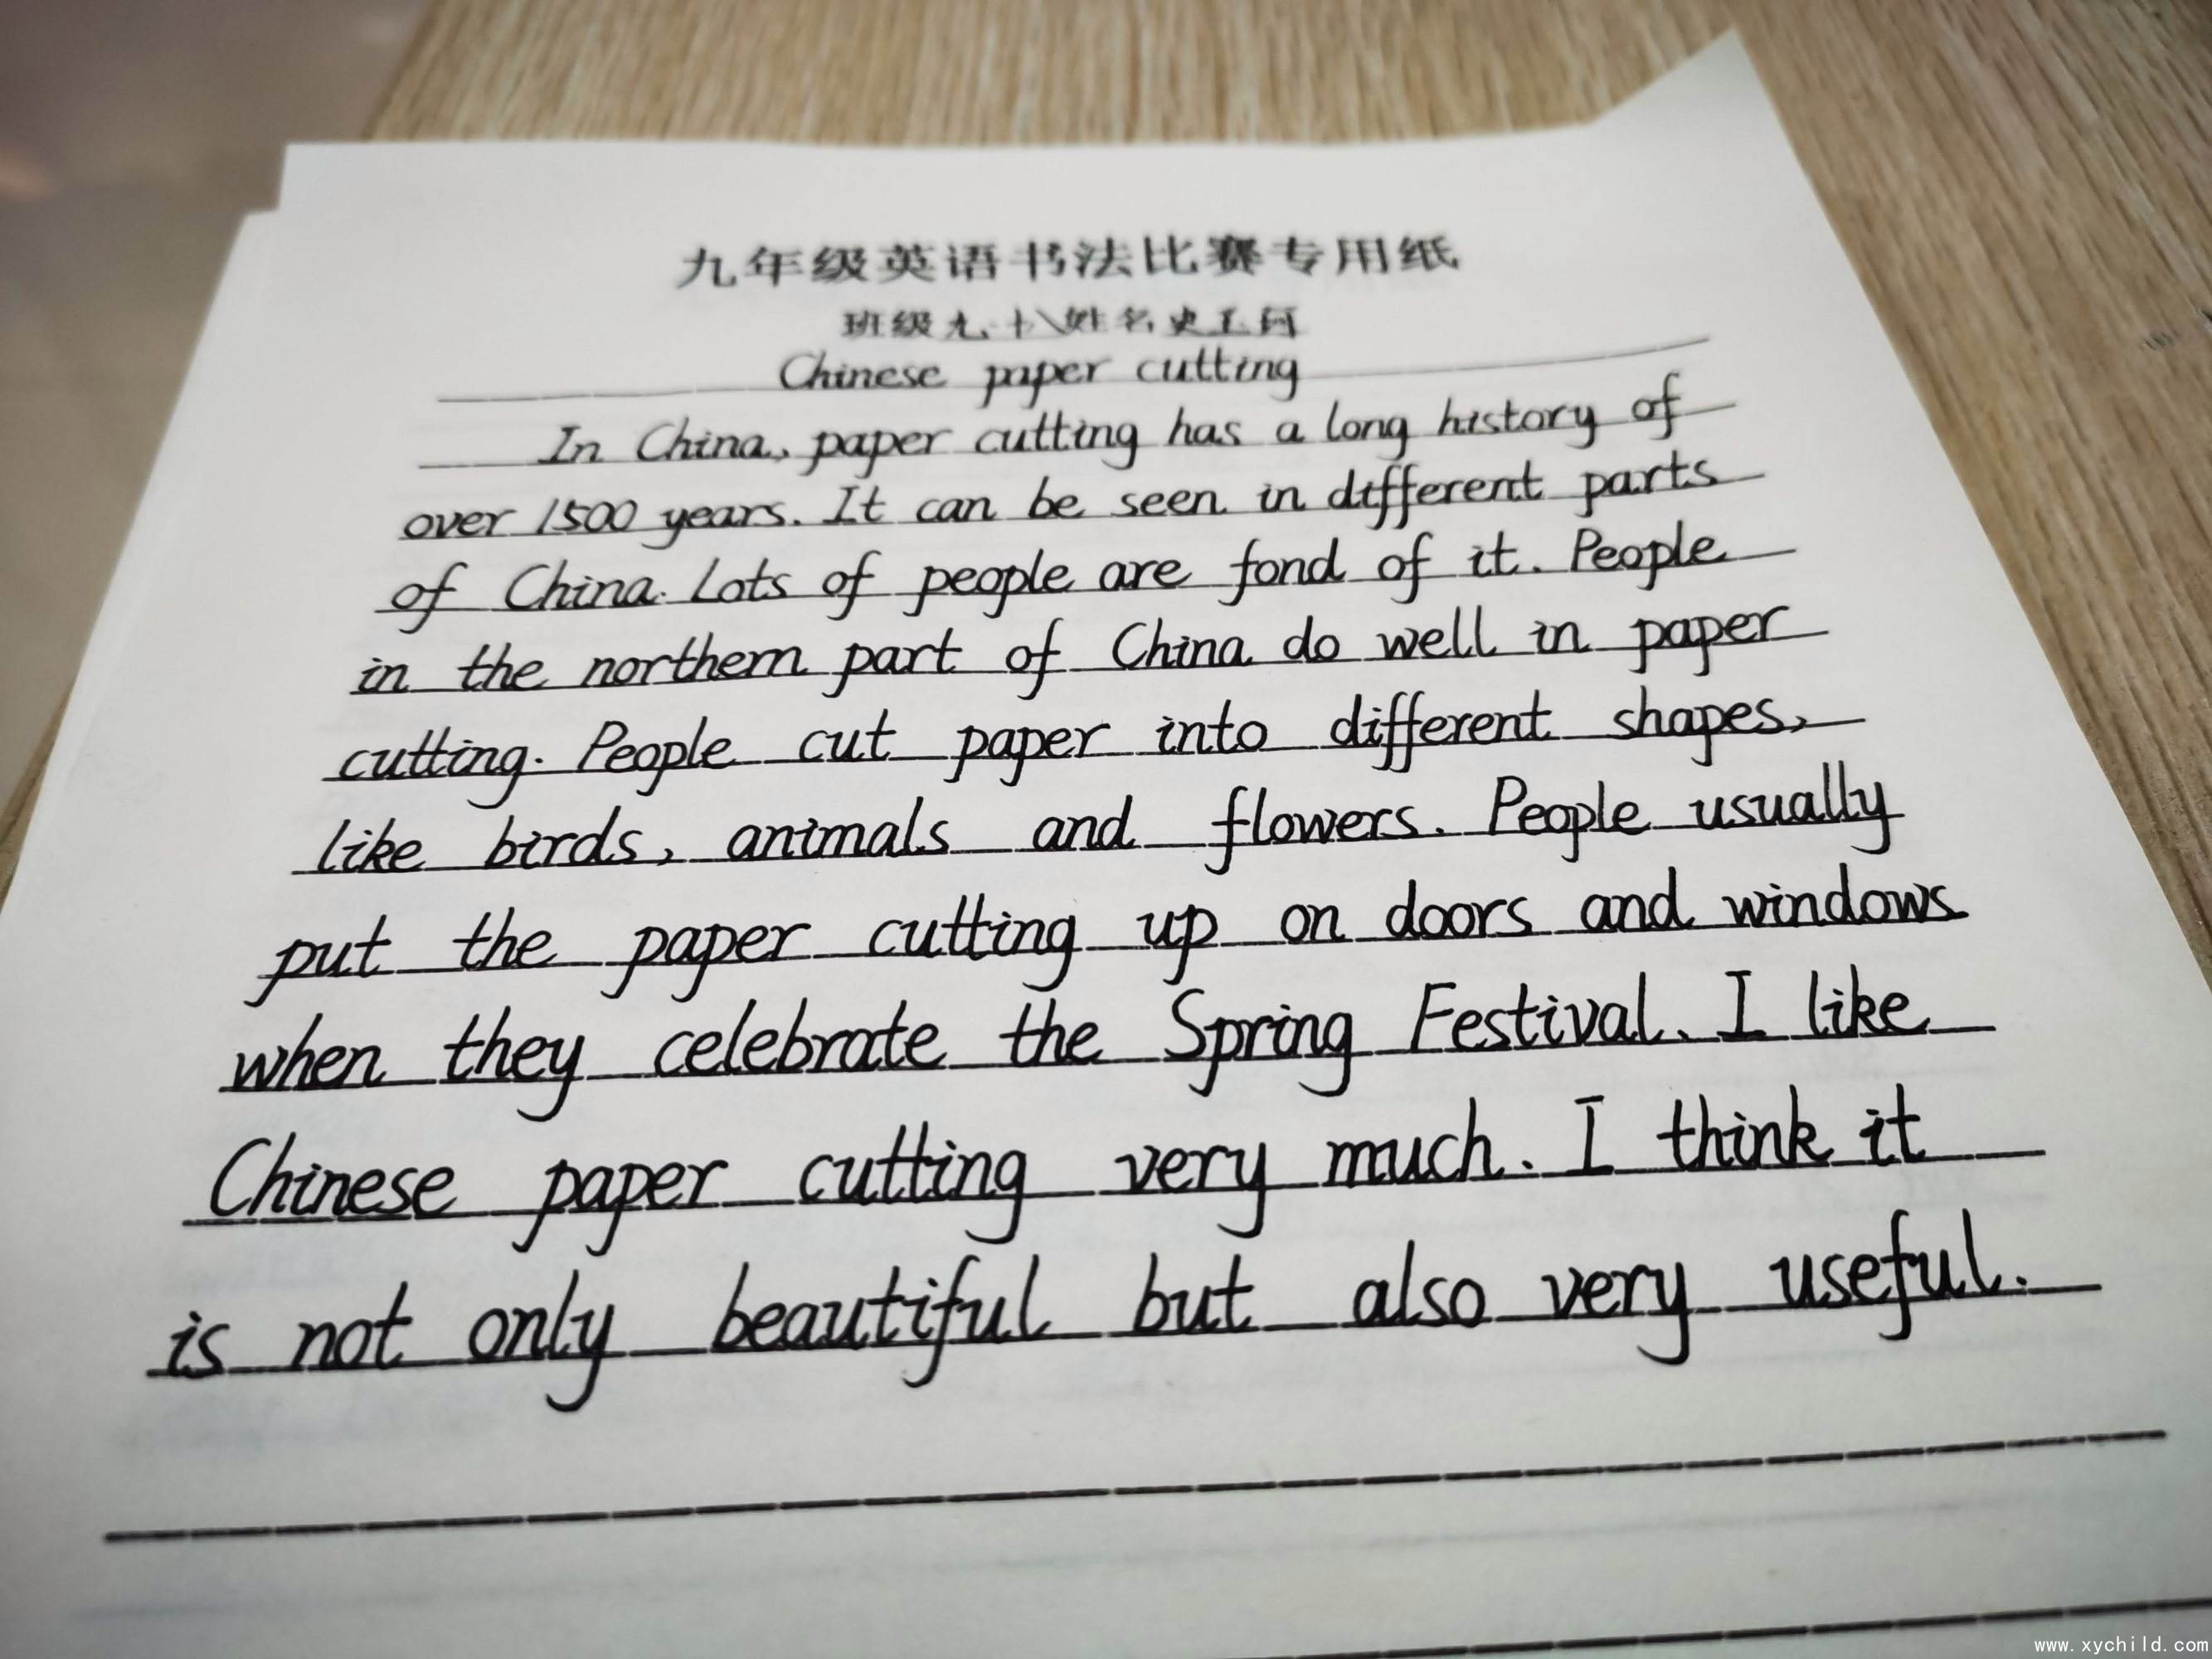 九年级英语书法比赛专用纸
班级九·十八姓名史
Chinese paper cutting
In China, paper cutting has a long history of
over 1500 years. It can be seen in different parts
of China. Lots of people are fond of it. People
in the northern part of China do well in paper
cutting. People cut paper into different shapes,
like birds, animals and flowers. People usually
put the paper cutting up on doors and windows
when they celebrate the Spring Festival. I like
Chinese paper cutting very much. I think it
is not only beautiful but also very useful.
www.xychild.com